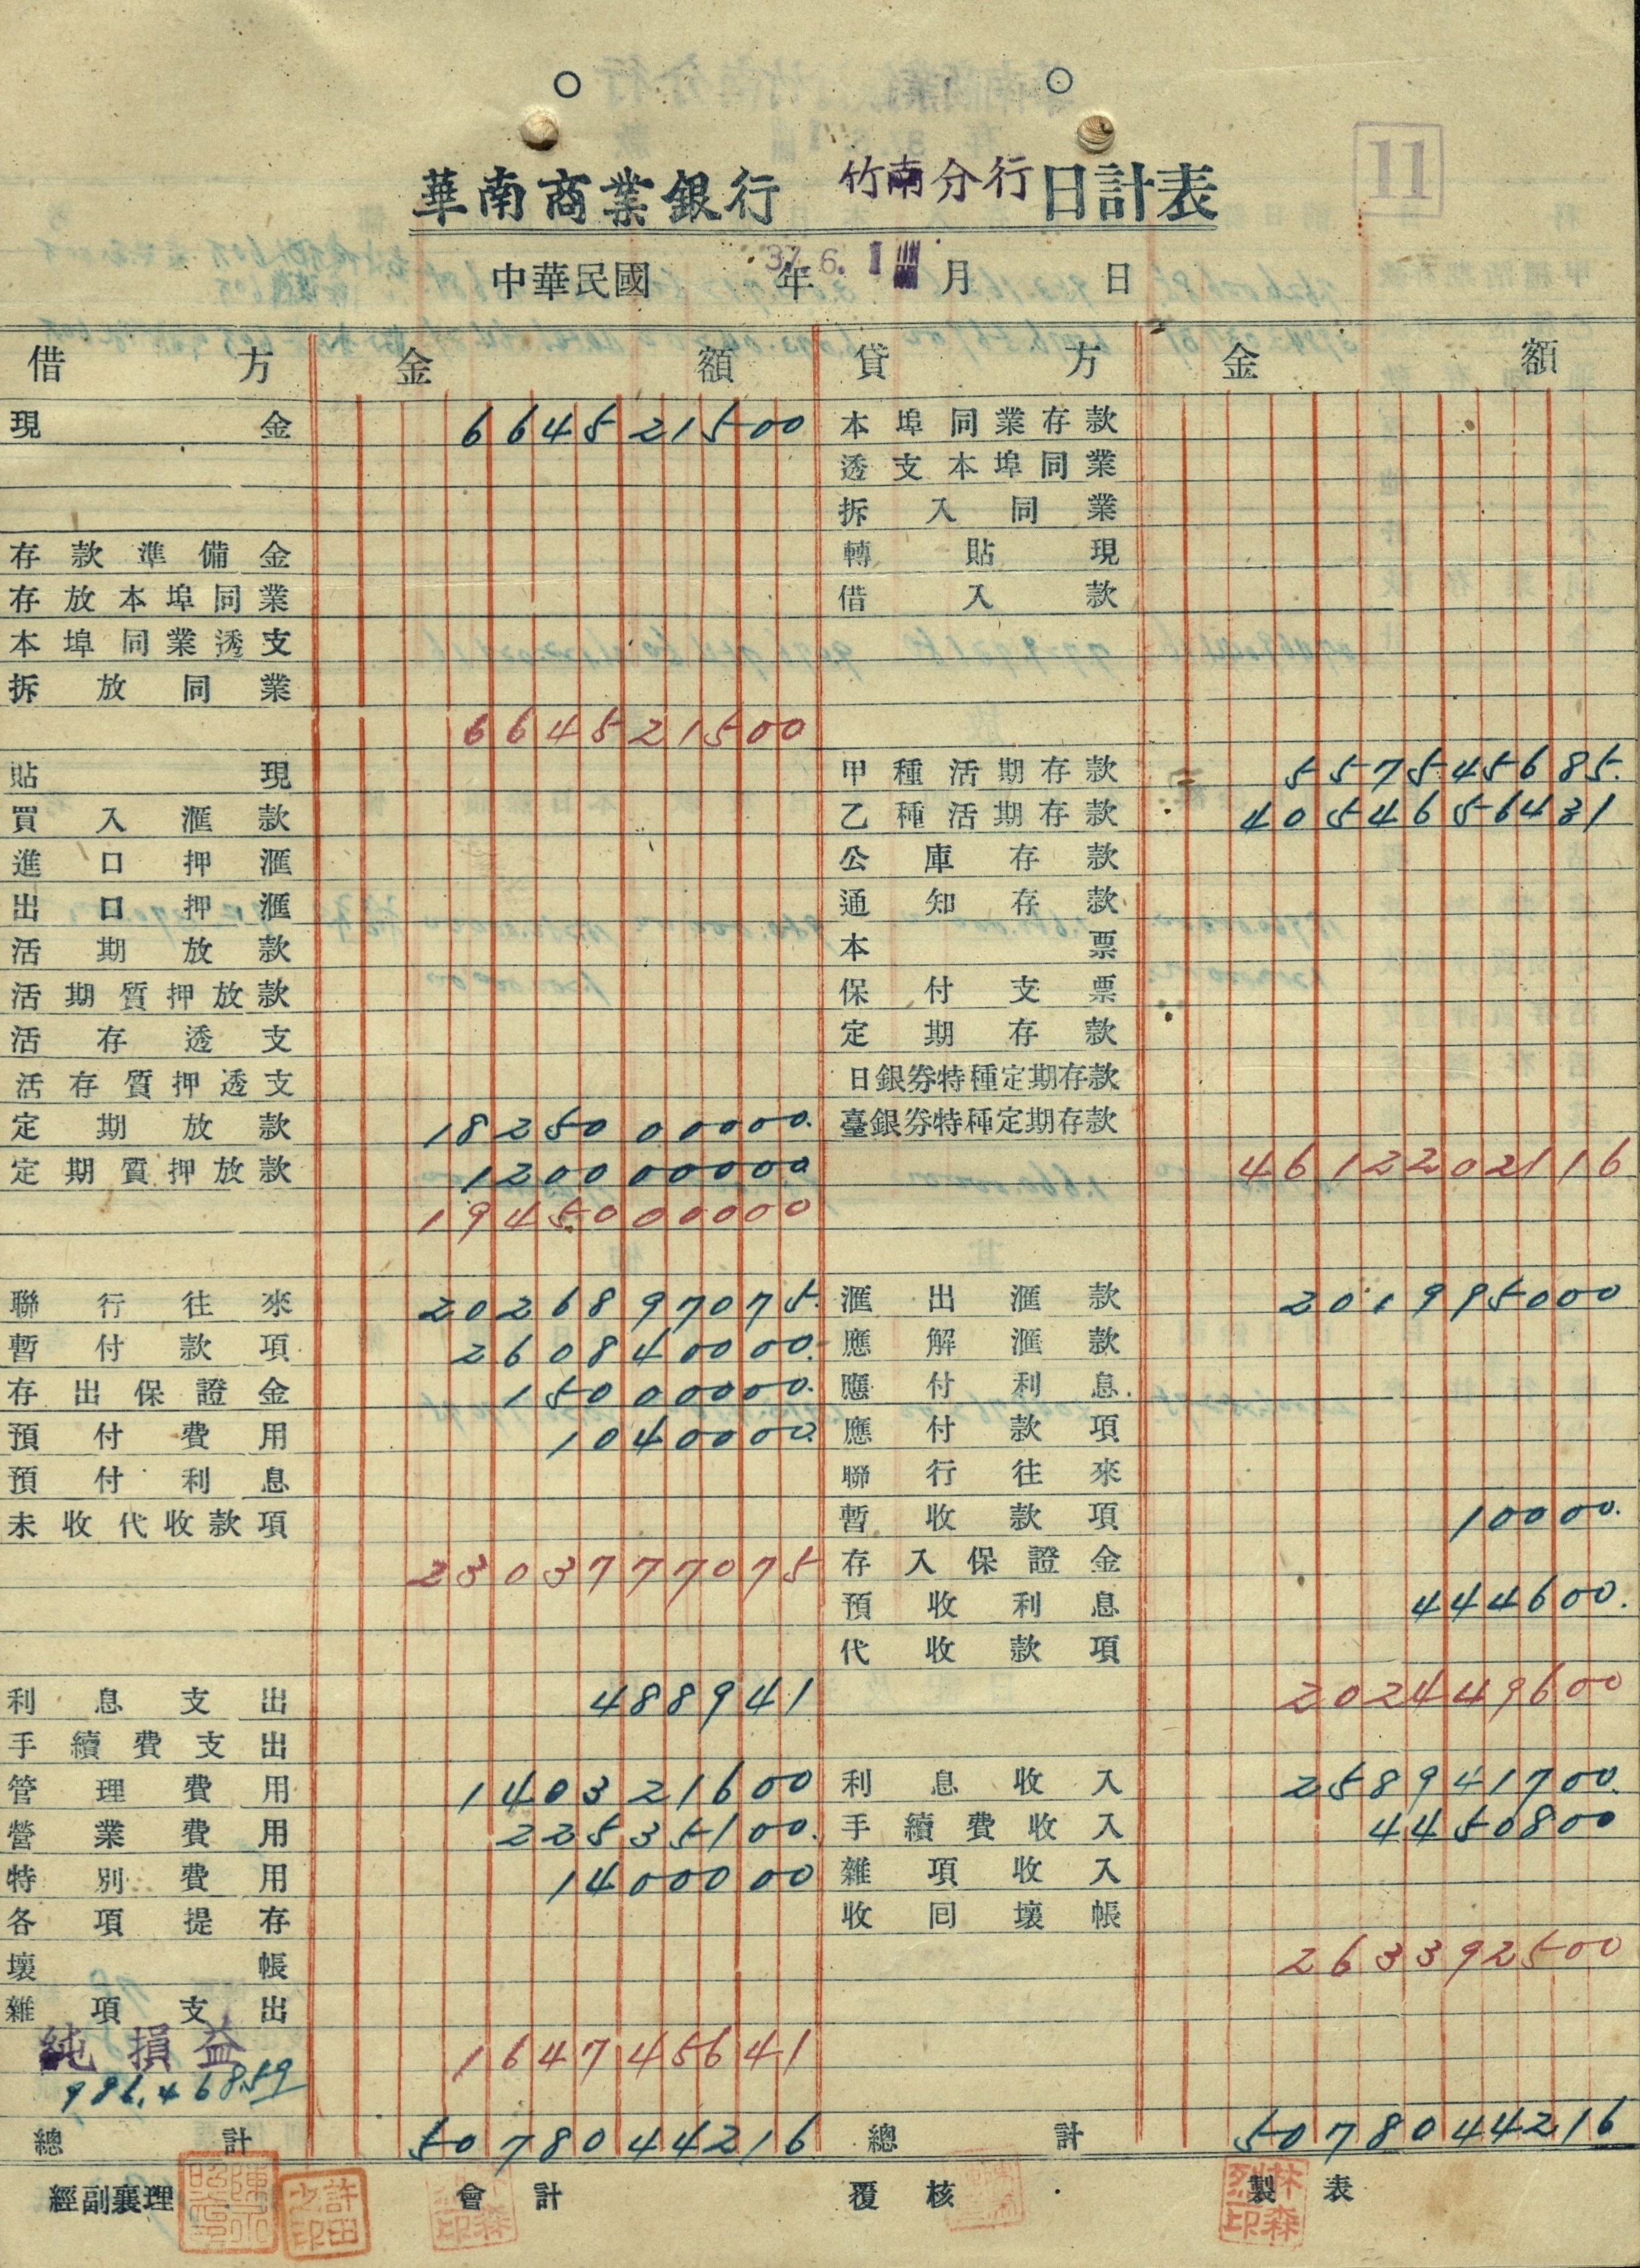 11
華南商業銀行 竹南分行 日計表
中華民國 37 年 6. 1 月 日
借方 金額 貸方 金額
現金 664521500 本埠同業存款
透支本埠同業
拆入同業
存款準備金 轉貼現
存放本埠同業 借入款
本埠同業透支
拆放同業
664521500
貼現 甲種活期存款 557545685
買入滙款 乙種活期存款 4054656431
進口押滙 公庫存款
出口押滙 通知存款
活期放款 本票
活期質押放款 保付支票
活存透支 定期存款
活存質押透支 日銀券特種定期存款
定期放款 1825000000 臺銀券特種定期存款
定期質押放款 120000000 4612202116
1945000000
聯行往來 2026897075 滙出滙款 201995000
暫付款項 260840000 應解滙款
存出保證金 15000000 應付利息
預付費用 1040000 應付款項
預付利息 聯行往來
未收代收款項 暫收款項 10000
2303777075 存入保證金
預收利息 444600
代收款項
利息支出 488941 202449600
手續費支出
管理費用 140321600 利息收入 258941700
營業費用 22535100 手續費收入 4450800
特別費用 1400000 雜項收入
各項提存 收回壞帳
壞帳 263392500
雜項支出
純損益 164745641
986,468.59
總計 5078044216 總計 5078044216
經副襄理 會計 覆核 製表